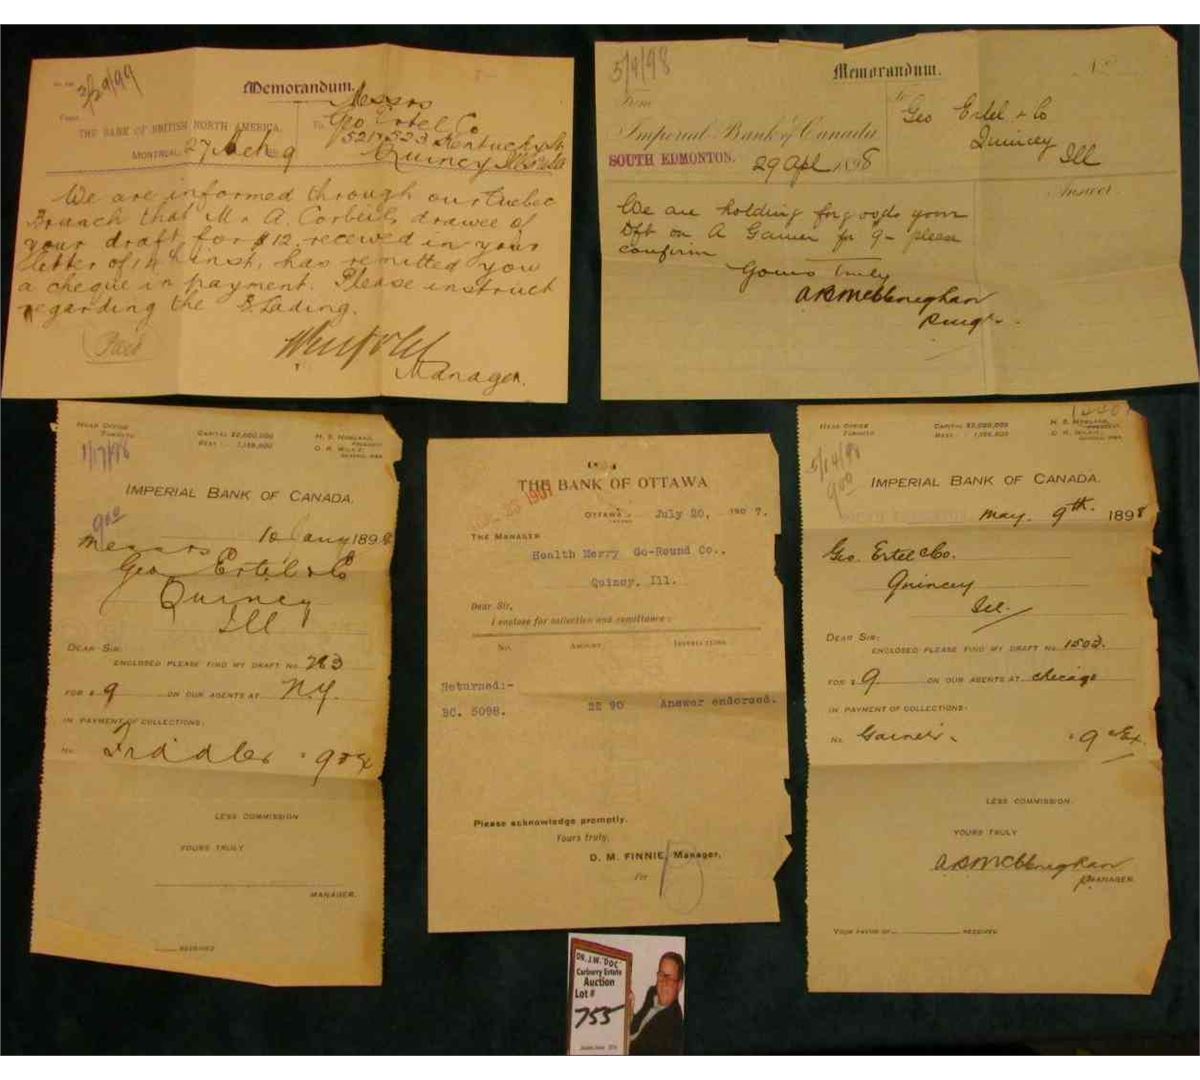 3/29/99
Memorandum.
From
THE BANK OF BRITISH NORTH AMERICA,
MONTREAL, 27 Mch 9 9
To
Messrs
Geo Ertel Co
521 & 523 Kentucky St
Quincy Ills
We are informed through our Quebec
Branch that Mr A. Corbeil, drawee of
your draft for $12, received in your
letter of 14th inst, has remitted you
a cheque in payment. Please instruct
regarding the B. Lading.
Paid
Manager.
5/4/98
Memorandum.
No
From
Imperial Bank of Canada
SOUTH EDMONTON.
29 Apl 1898
To
Geo Ertel & Co
Quincey
Ill
Answer
We are holding for goods your
Dft on A Garner for 9- please
confirm
Yours truly
HEAD OFFICE
TORONTO
CAPITAL $2,000,000
REST
H. S. HOWLAND,
PRESIDENT
D. R. WILKIE,
GENERAL MGR.
1/17/98
IMPERIAL BANK OF CANADA.
9.00
10 Jany 189
Messrs
Geo Ertel & Co
Quincy
Ill
DEAR SIR:
ENCLOSED PLEASE FIND MY DRAFT No. 783
FOR $ 9 ON OUR AGENTS AT N.Y.
IN PAYMENT OF COLLECTIONS:
No.
LESS COMMISSION
YOURS TRULY
MANAGER.
RECEIVED
THE BANK OF OTTAWA
OTTAWA, July 20, 1907.
THE MANAGER
Health Merry Go-Round Co.,
Quincy, Ill.
Dear Sir,
I enclose for collection and remittance:
No. AMOUNT INSTRUCTIONS
Returned:-
BC. 5098. 22 90 Answer endorsed.
Please acknowledge promptly.
Yours truly,
D. M. FINNIE, Manager,
Per
HEAD OFFICE
TORONTO
CAPITAL $2,000,000
REST
H. S. HOWLAND,
PRESIDENT
D. R. WILKIE,
GENERAL MGR.
5/14/98
9.00
IMPERIAL BANK OF CANADA.
May. 9th. 1898
Geo. Ertel & Co.
Quincey
Ill.
DEAR SIR:
ENCLOSED PLEASE FIND MY DRAFT No. 1503.
FOR $ 9. ON OUR AGENTS AT Chicago
IN PAYMENT OF COLLECTIONS:
No. Garner. 9
LESS COMMISSION.
YOURS TRULY
MANAGER.
YOUR FAVOR OF RECEIVED
DR. J.W. "DOC"
Carberry Estate
Auction
Lot #
755